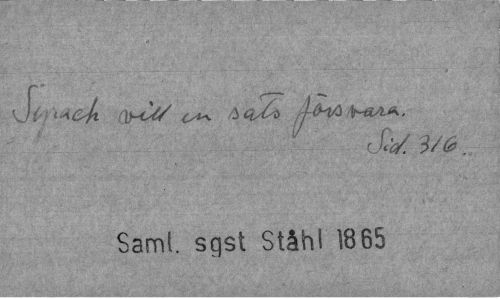 Syrach vill en sats försvara.
Sid. 316.
Saml. sgst Ståhl 1865